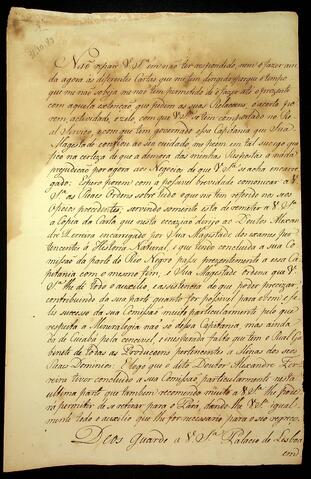 Naõ repare V. S.ª em naõ ter respondido, nem o fazer ain
da agora ás differentes Cartas que me tem dirigido porque o tempo
que me naõ sobeja me naõ tem permittido de o fazer até o prezente
com aquella extençaõ que pedem as suas Relaçoens, o acerto po
rém, actividade, e zelo, com que V. S.ª se tem comportado no Re
al Serviço, e com que tem governado essa Capitania que Sua
Magestade confiou ao seu cuidado, me poem em tal sucego que
fico na certeza de que a demora das minhas Respostas a nada
prejudicaõ por agora aos Negocios de que V. S.ª se acha encarre
gado: Espero porem com a possivel brevidade comunicar a V.
S.ª as Reaes Ordens sobre tudo o que tem referido nos seus
Officios precedentes; servindo somente esta de remeter a V. S.ª
a Copia da Carta que nesta occaziaõ dirijo ao Doutor Alexan
dre Ferreira encarregado por Sua Magestade dos exames per
tencentes á Historia Natural, e que tendo concluido a sua Co
missaõ da parte do Rio Negro passa prezentemente a essa Ca
pitania com o mesmo fim; e Sua Magestade ordena que V.
S.ª lhe dê todo o auxilio, e assistencia de que poder precizar,
contribuindo da sua parte quanto for possivel para o bom e fe
liz sucesso da sua Comissaõ muito particularmente pelo que
respeita a Mineralogia naõ só dessa Capitania, mas ainda
da de Cuiabá pela concideravel, e inesperada falta que tem o Real Ga
binete de todas as Producçoens pertencentes a Minas dos seus
Reaes Dominios. Logo que o dito Doutor Alexandre Fer
reira tiver concluido a sua Comissaõ particularmente nesta
ultima parte que tambem recomendo muito a V. S.ª lhe pode
rá permitir de se retirar para o Pará, dando-lhe V. S.ª igual
mente todo o auxilio que lhe for necessario para o seu regreço.
Deos Guarde a V. S.ª Palacio de Lisboa
em